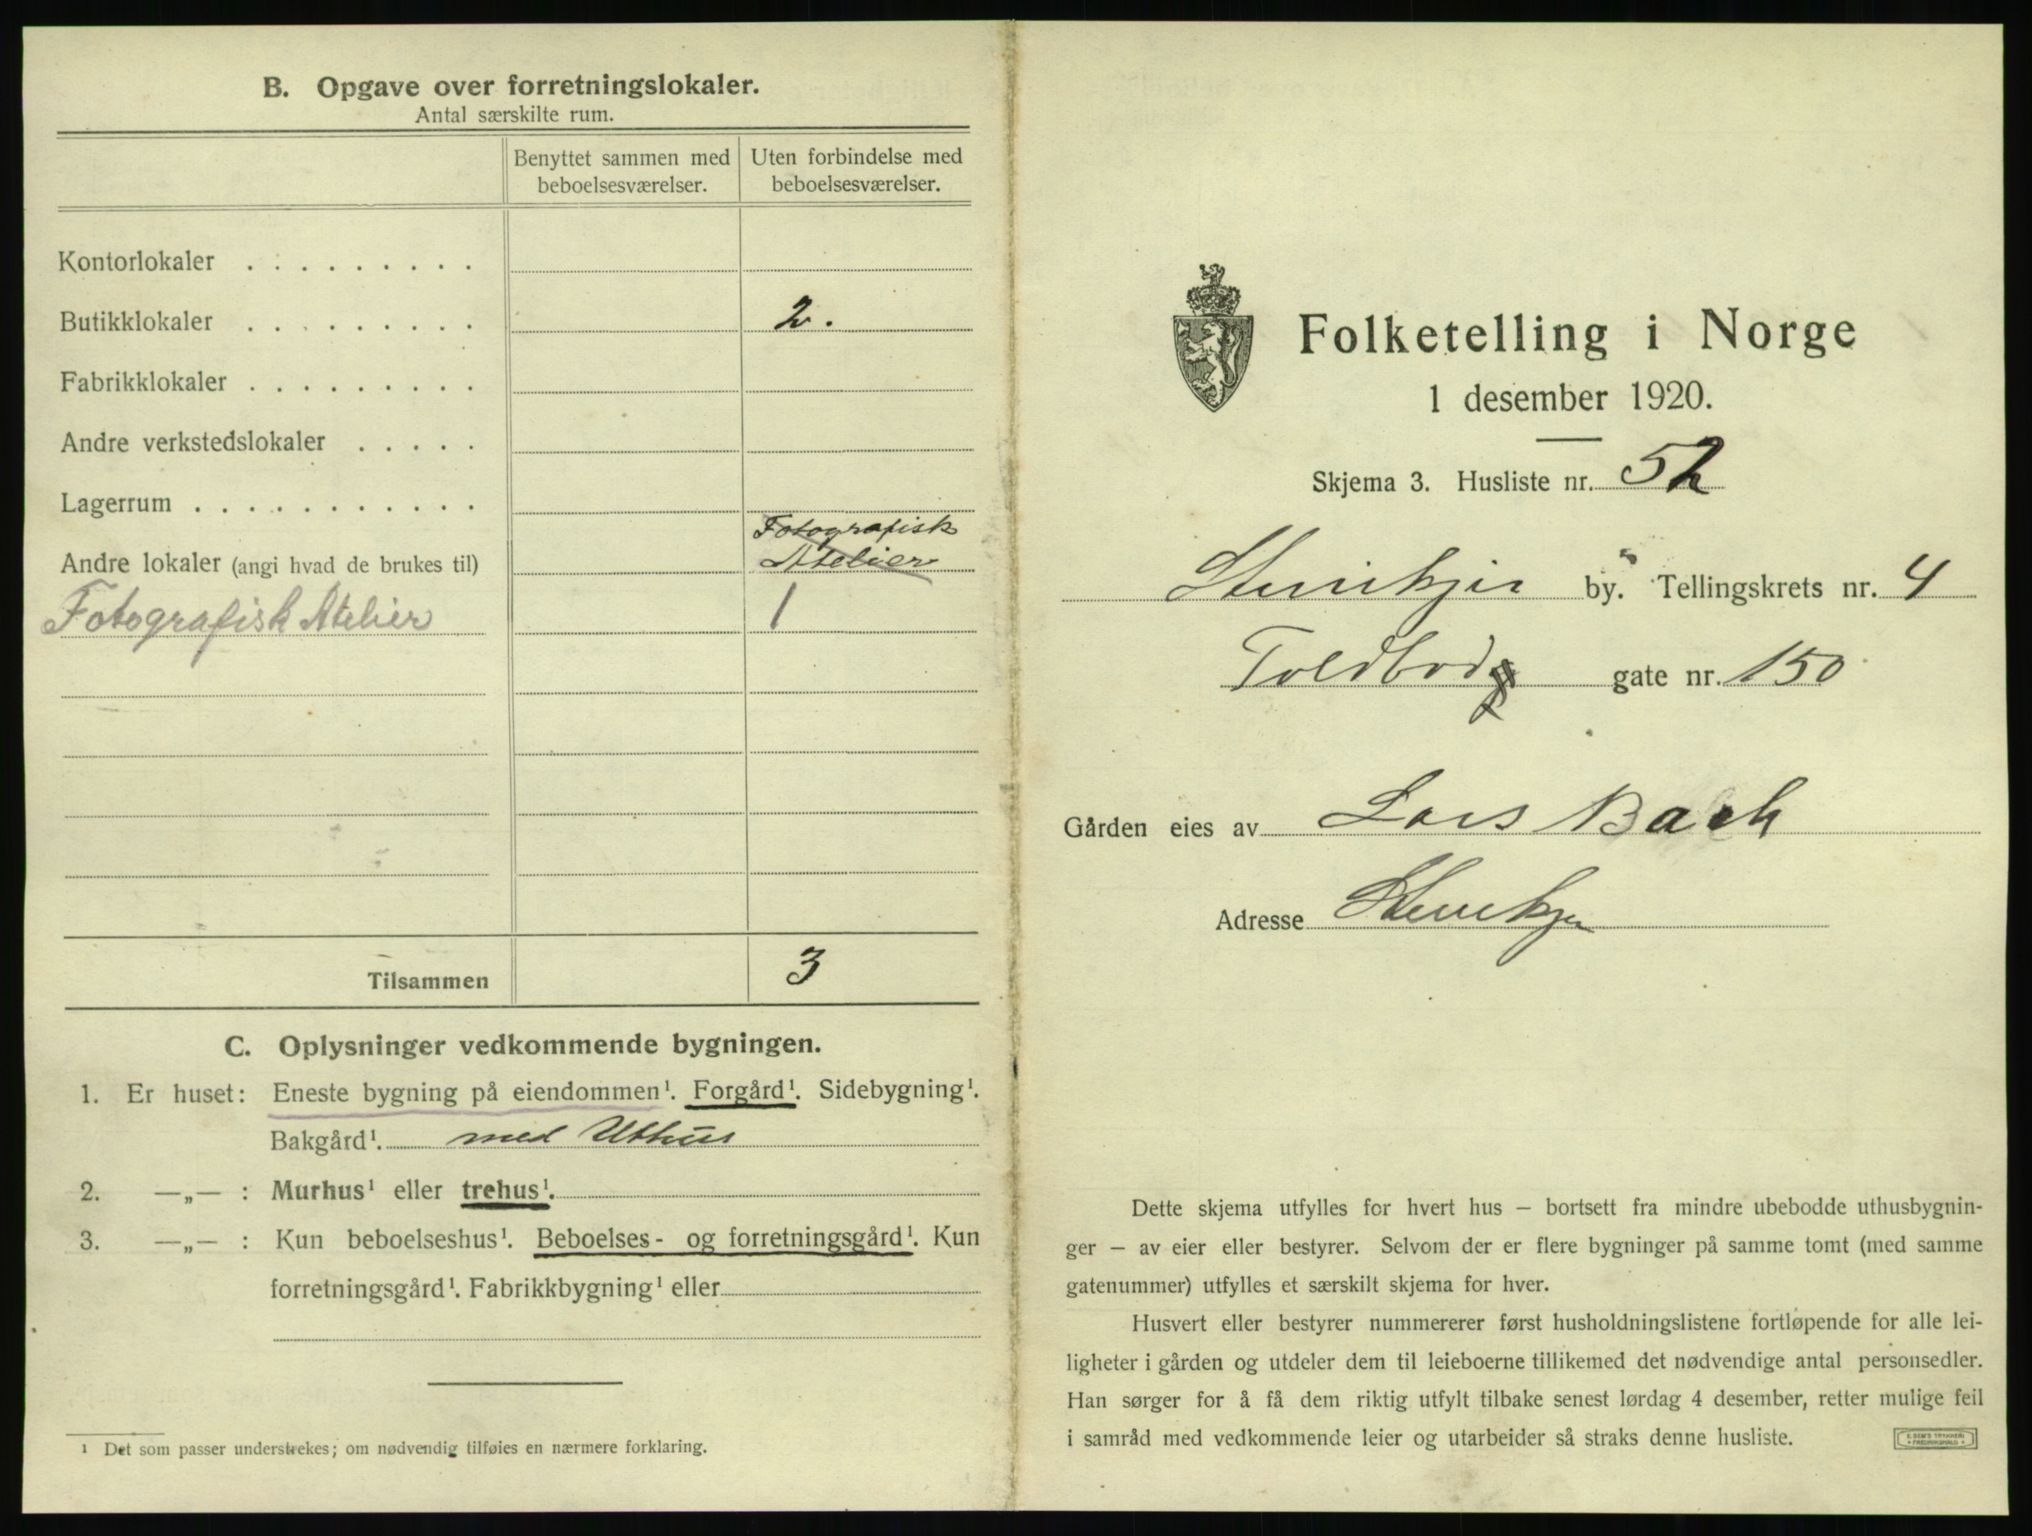 B. Opgave over forretningslokaler.
Antal særskilte rum.
Benyttet sammen med beboelsesværelser.
Uten forbindelse med beboelsesværelser.
Kontorlokaler . . . . . . . . .
Butikklokaler . . . . . . . . . 2.
Fabrikklokaler . . . . . . . . .
Andre verkstedslokaler . . . . .
Lagerrum . . . . . . . . . . .
Fotografisk
Andre lokaler (angi hvad de brukes til) Atelier
Fotografisk Atelier 1
Tilsammen 3
C. Oplysninger vedkommende bygningen.
1. Er huset: Eneste bygning på eiendommen¹. Forgård¹. Sidebygning¹.
Bakgård¹. med Uthus
2. —„— : Murhus¹ eller trehus¹.
3. —„— : Kun beboelseshus¹. Beboelses- og forretningsgård¹. Kun
forretningsgård¹. Fabrikkbygning¹ eller
¹ Det som passer understrekes; om nødvendig tilføies en nærmere forklaring.
Folketelling i Norge
1 desember 1920.
Skjema 3. Husliste nr. 52
Stenkjer by. Tellingskrets nr. 4
Toldbod gate nr. 150
Gården eies av Lars Bach
Adresse Stenkjer
Dette skjema utfylles for hvert hus – bortsett fra mindre ubebodde uthusbygnin-
ger – av eier eller bestyrer. Selvom der er flere bygninger på samme tomt (med samme
gatenummer) utfylles et særskilt skjema for hver.
Husvert eller bestyrer nummererer først husholdningslistene fortløpende for alle lei-
ligheter i gården og utdeler dem til leieboerne tillikemed det nødvendige antal personsedler.
Han sørger for å få dem riktig utfylt tilbake senest lørdag 4 desember, retter mulige feil
i samråd med vedkommende leier og utarbeider så straks denne husliste.
E. SEM'S TRYKKERI
FREDRIKSHALD